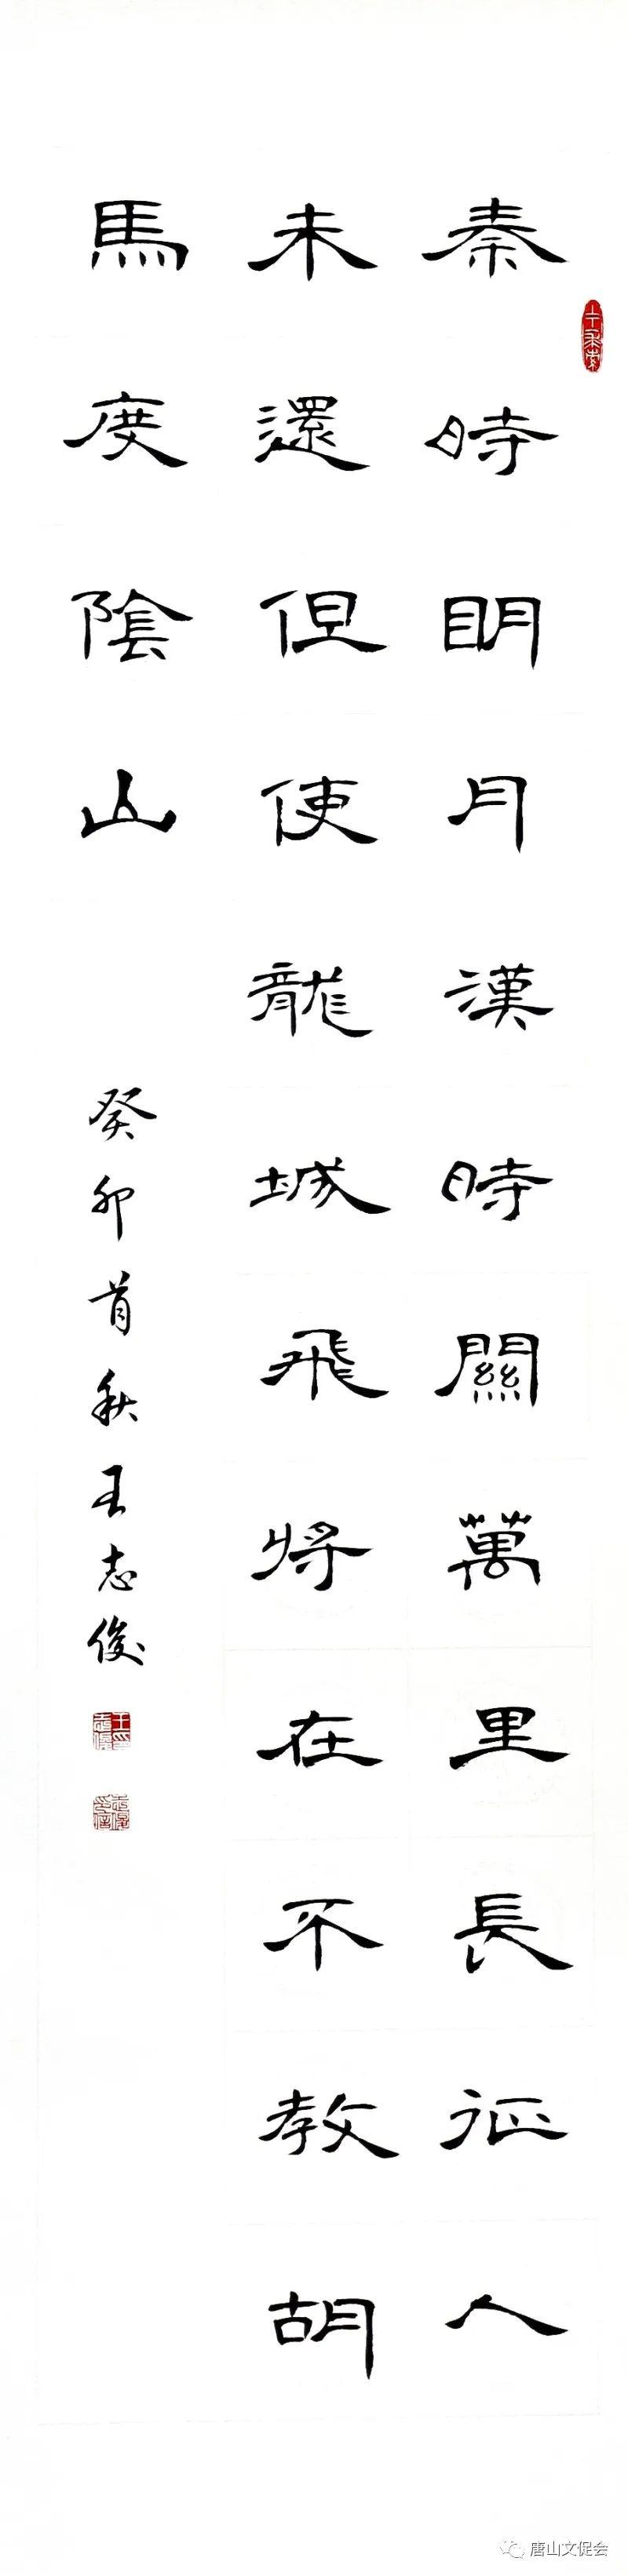 秦時明月漢時關萬里長征人
未還但使龍城飛將在不教胡
馬度陰山
癸卯首秋王志俊
唐山文促会